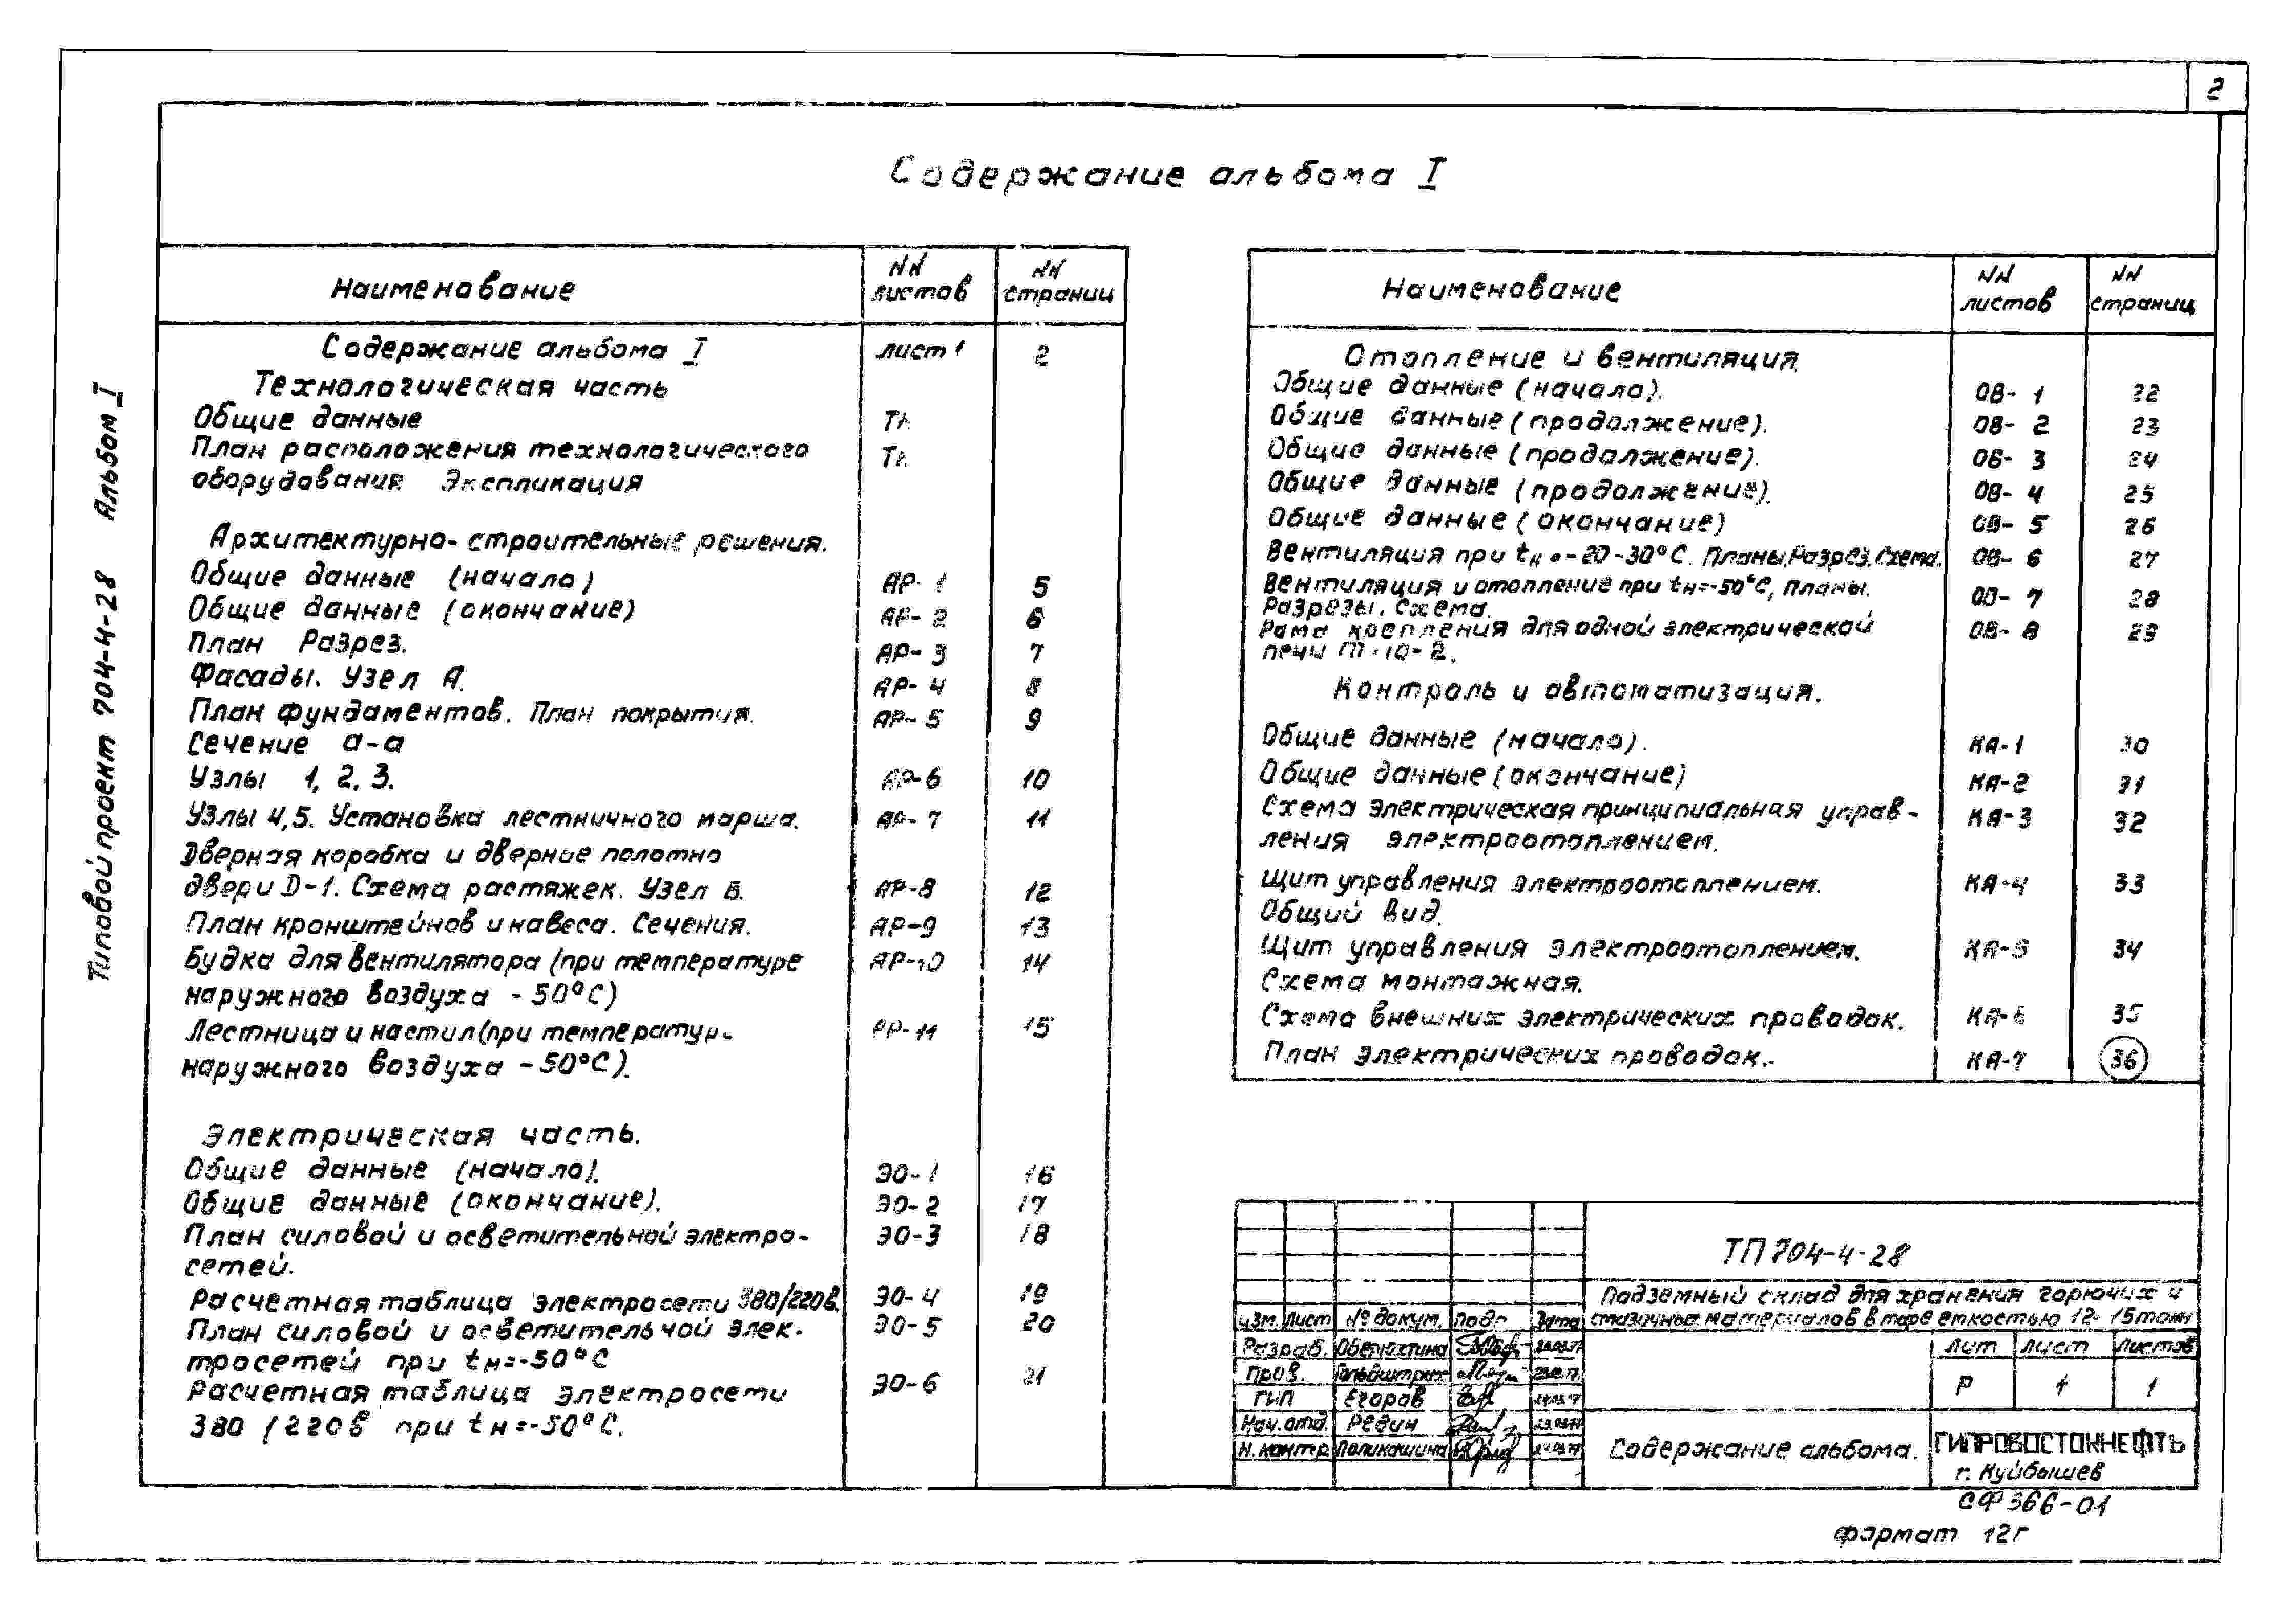 2
Содержание альбома I
Типовой проект 704-4-28 Альбом I
Наименование NN листов NN страниц
Содержание альбома I лист 1 2
Технологическая часть
Общие данные
План расположения технологического
оборудования Экспликация
Архитектурно-строительные решения.
Общие данные (начало) АР-1 5
Общие данные (окончание) АР-2 6
План Разрез. АР-3 7
Фасады. Узел А. АР-4 8
План фундаментов. План покрытия. АР-5 9
Сечение а-а
Узлы 1, 2, 3. АР-6 10
Узлы 4,5. Установка лестничного марша. АР-7 11
Дверная коробка и дверные полотно
двери D-1. Схема растяжек. Узел Б. АР-8 12
План кронштейнов и навеса. Сечения. АР-9 13
Будка для вентилятора (при температуре АР-10 14
наружного воздуха -50°С)
Лестница и настил (при температур- АР-11 15
наружного воздуха -50°С).
Электрическая часть.
Общие данные (начало). ЭО-1 16
Общие данные (окончание). ЭО-2 17
План силовой и осветительной электро- ЭО-3 18
сетей.
Расчетная таблица электросети 380/220в. ЭО-4 19
План силовой и осветительной элек- ЭО-5 20
тросетей при tн=-50°С
Расчетная таблица электросети ЭО-6 21
380/220в при tн=-50°С.
Наименование NN листов NN страниц
Отопление и вентиляция.
Общие данные (начало). ОВ-1 22
Общие данные (продолжение). ОВ-2 23
Общие данные (продолжение). ОВ-3 24
Общие данные (продолжение). ОВ-4 25
Общие данные (окончание) ОВ-5 26
Вентиляция при tн=-20-30°С. Планы, Разрез. Схема. ОВ-6 27
Вентиляция и отопление при tн=-50°С, Планы. ОВ-7 28
Разрезы. Схема.
Рама крепления для одной электрической ОВ-8 29
печи ПТ-10-2.
Контроль и автоматизация.
Общие данные (начало). КА-1 30
Общие данные (окончание) КА-2 31
Схема электрическая принципиальная управ- КА-3 32
ления электроотоплением.
Щит управления электроотоплением. КА-4 33
Общий вид.
Щит управления электроотоплением. КА-5 34
Схема монтажная.
Схема внешних электрических проводок. КА-6 35
План электрических проводок. КА-7 36
ТП 704-4-28
Подземный склад для хранения горючих и
смазочных материалов в таре емкостью 12-15 тонн
Изм. Лист № докум. Подп. Дата
Разраб. Оберюхтина
Пров. Гольдштрах
ГИП Егоров
Нач. отд. Редин
Н. контр.
Лит Лист Листов
Р 1 1
Содержание альбома.
ГИПРОВОСТОКНЕФТЬ
г. Куйбышев
СФ 366-01
формат 12г